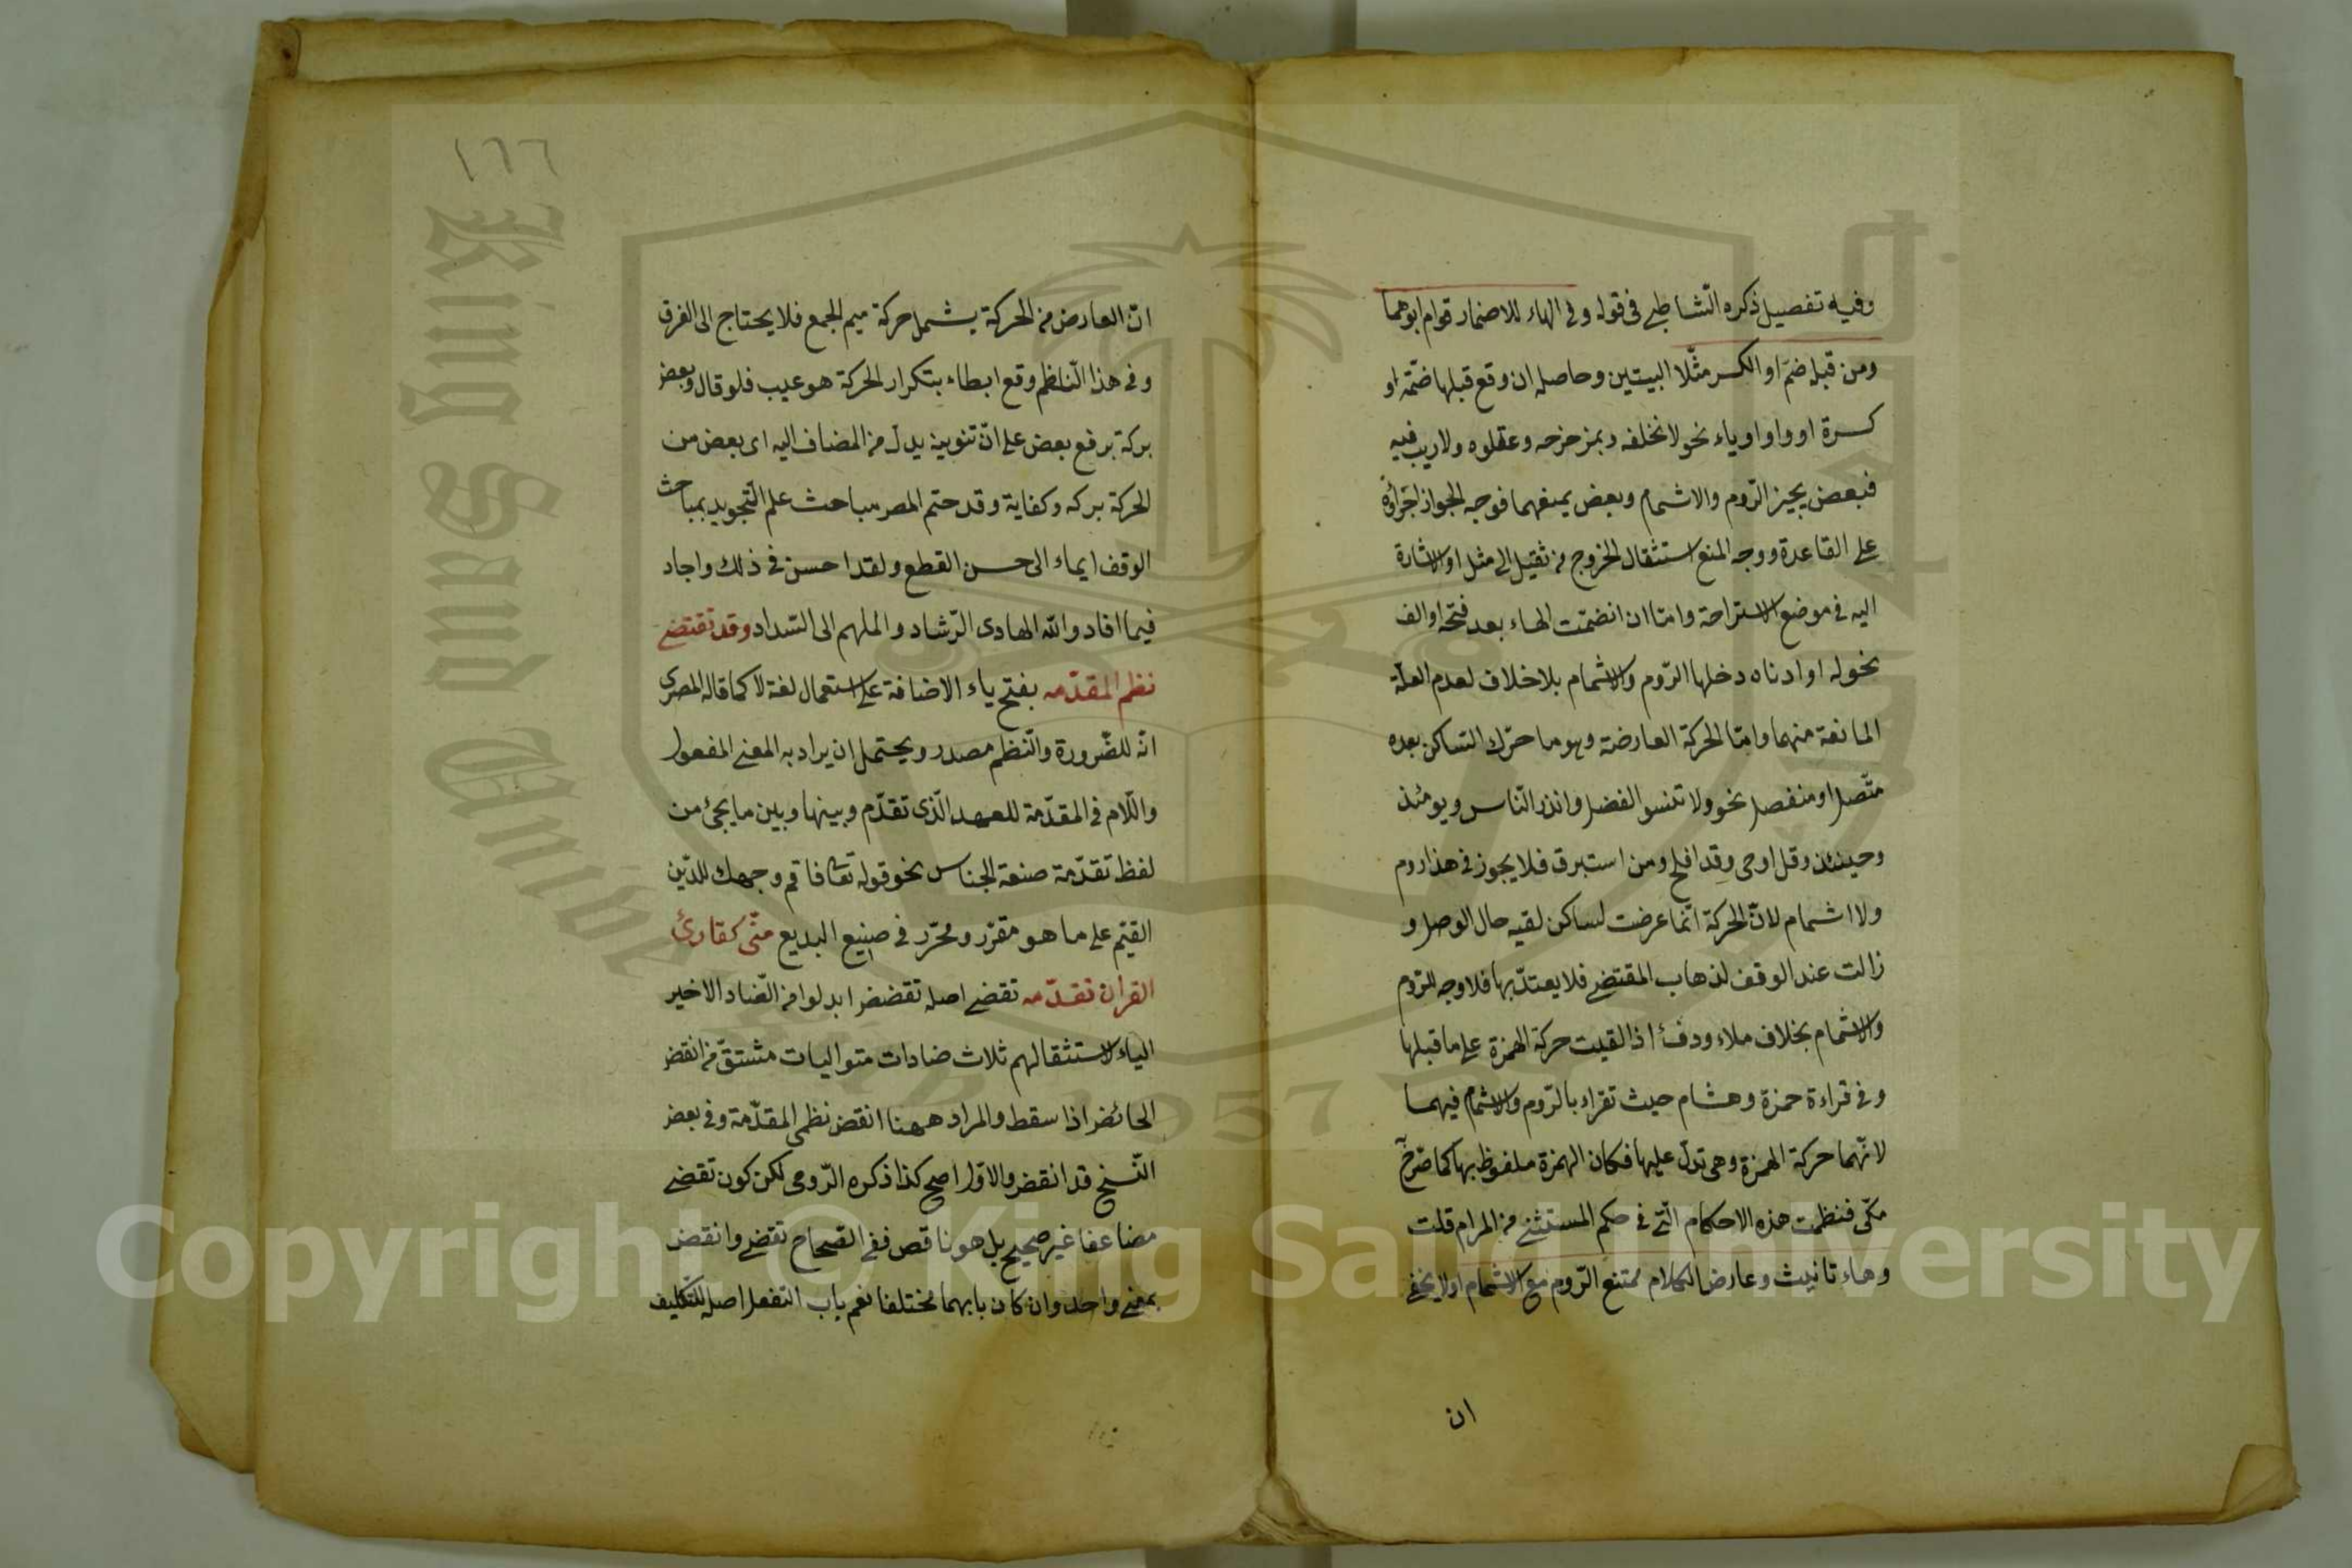 وفيه تفصيل ذكره الشاطبي في قوله وفي الهاء للاضمار قوام ابوهما
ومن قبله ضم او الكسر مثّلا البيتين وحاصله ان وقع قبلها ضمّة او
كسرة او واو او ياء نحو لا نخلفه وبمزحزحه وعقلوه ولا ريب فيه
فبعض يجيز الرّوم والاشمام وبعض يمنعهما فوجه الجواز اجراؤه
على القاعدة ووجه المنع استثقال الخروج من ثقيل الى مثل او الاشارة
اليه في موضع الاستراحة وامّا ان انضمّت الهاء بعد فتحة او الف
نحو له او ادناه دخلها الرّوم والاشمام بلا خلاف لعدم العلّة
المانعة منهما وامّا الحركة العارضة وهو ما حرّك السّاكن بعده
متّصل او منفصل نحو ولا تنسو الفضل وانذر النّاس ويومئذ
وحينئذ وقل اوحى وقد افلح ومن استبرق فلا يجوز في هذا روم
ولا اشمام لانّ الحركة انّما عرضت لساكن لقيه حال الوصل و
زالت عند الوقف لذهاب المقتضى فلا يعتدّ بها فلا وجه للرّوم
والاشمام بخلاف ملاء ودفء اذا القيت حركة الهمزة على ما قبلها
وفي قراءة حمزة وهشام حيث تقراء بالرّوم والاشمام فيهما
لانّهما حركة الهمزة وهى تدلّ عليها فكان الهمزة ملفوظ بها كما صّرح
مكّى فنظمت هذه الاحكام الّتى في حكم المستثنى من المرام قلت
وهاء تانيث وعارض الكلام ممتنع الرّوم مع الاشمام اولا يخفى
ان
١٦٦
انّ العارض من الحركة يشمل حركة ميم الجمع فلا يحتاج الى الفرق
وفي هذا النّاظم وقع ابطاء بتكرار الحركة هو عيب فلو قال وبعض
بركة برفع بعض على انّ تنوينه بدل من المضاف اليه اى بعض من
الحركة بركه وكفاية وقد ختم المصر مباحث علم التّجويد بمباحث
الوقف ايماء الى حسن القطع ولقد احسن في ذلك واجاد
فيما افاد والله الهادى الرّشاد والملهم الى السّداد وقد تقضى
نظم المقدّمه بفتح ياء الاضافة على استعمال لغة لا كما قاله المصرى
انّه للضّرورة والنّظم مصدر ويحتمل ان يراد به المعنى المفعول
واللّام في المقدّمة للعهد الّذى تقدّم وبينها وبين ما يجئ من
لفظ تقدّمة صنعة الجناس نحو قوله تعالى فاقم وجهك للدّين
القيّم على ما هو مقرّر ومحرّر في صنيع البديع منّى كقارئ
القران تقدّمه تقضى اصله تقضض ابدلوا من الضّاد الاخير
الياء لاستثقالهم ثلاث ضادات متواليات مشتقّ من انقض
الحائض اذا سقط والمراد ههنا انقض نظمى المقدّمة وفي بعض
النّسخ قد انقض والاوّل اصح كذا ذكره الرّومى لكن كون تقضى
مضاعفا غير صحيح بل هو ناقص ففى الصّحاح تقضى وانقض
بمعنى واحد وان كان بابهما مختلفا نعم باب التفعل اصل للتّكليف
Copyright © King Saud University
King Saud University
1957